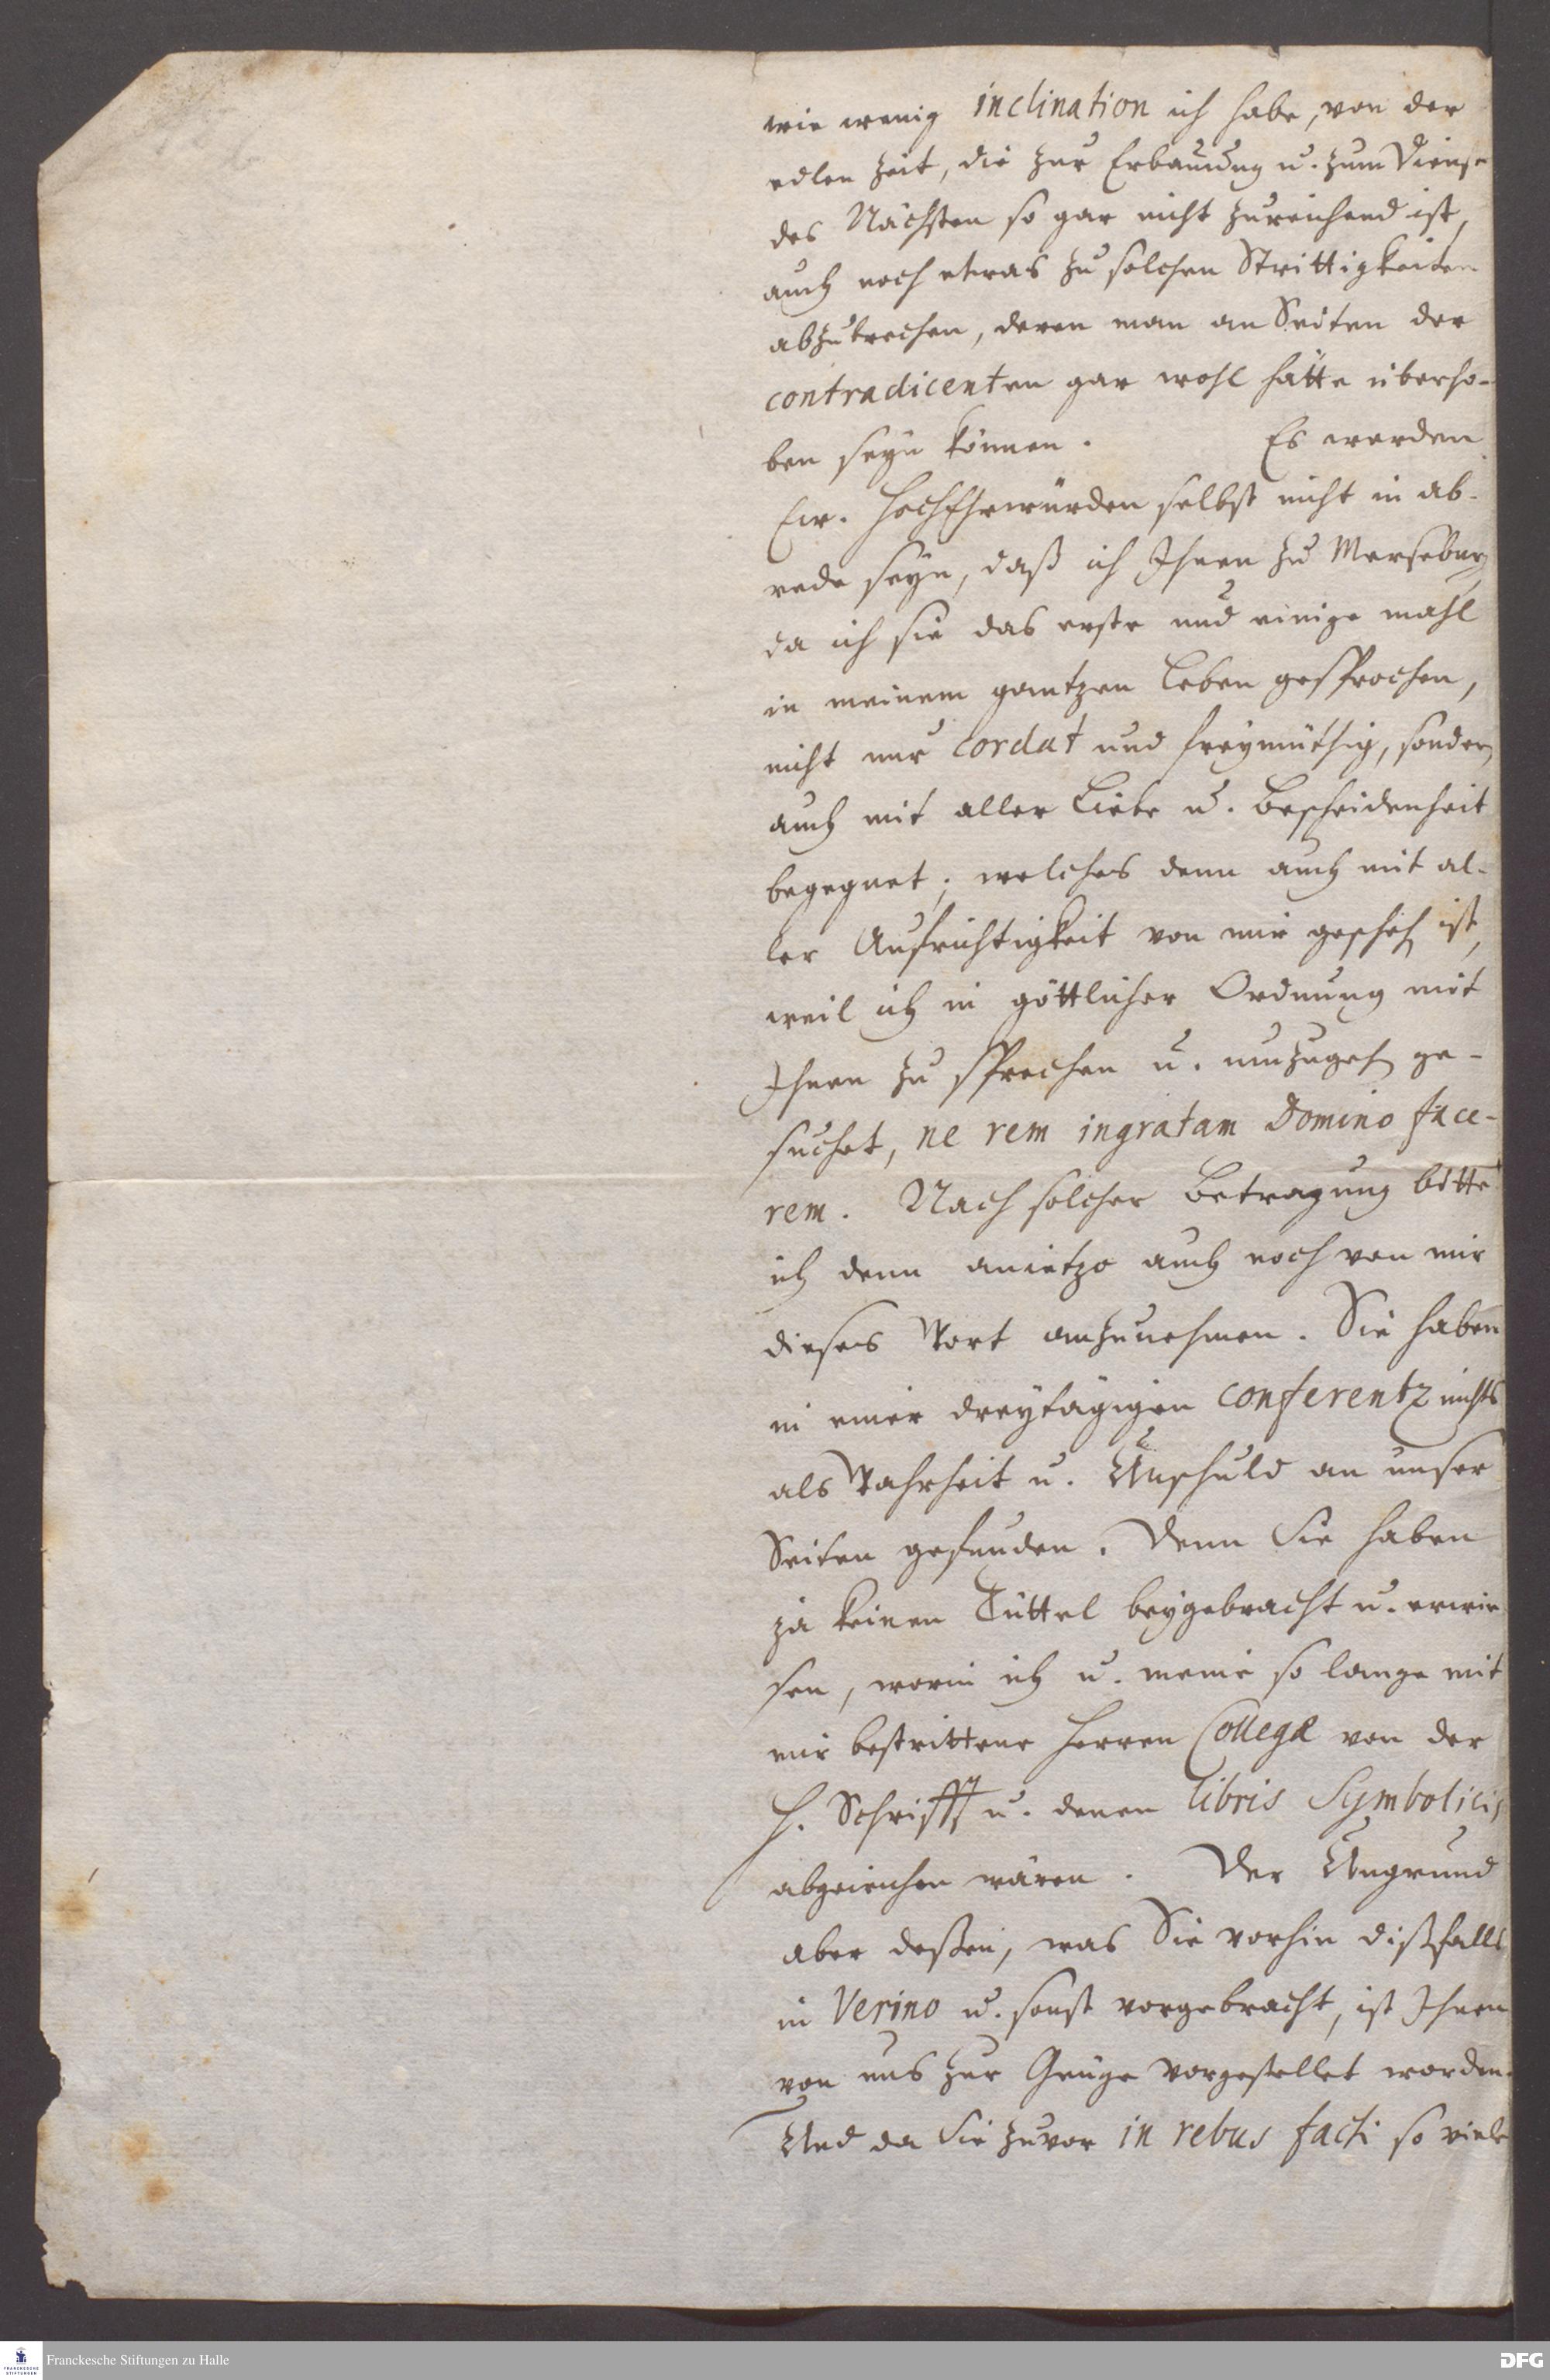 wie wenig inclination ich habe, von der
edlen Zeit, die zur Erbauung u. zum Dienst
des Nächsten so gar nicht zureichend ist,
auch noch etwas zu solchen Strittigkeiten
abzubrechen, deren man an Seiten der
contradicenten gar wohl hätte überho-
ben seyn können. Es werden
Ew. HochEhrwürden selbst nicht in ab-
rede seyn, daß ich Ihnen zu Merseburg
da ich sie das erste und einige mahl
in meinem gantzen Leben gesprochen,
nicht nur cordat und freymüthig, sondern
auch mit aller Liebe u. Bescheidenheit
begegnet; welches denn auch mit al-
ler Aufrichtigkeit von mir gescheh ist,
weil ich in göttlicher Ordnung mit
Ihnen zu sprechen u. umzugeh ge-
suchet, ne rem ingratam Domino face-
rem. Nach solcher Betragung bitte
ich denn anietzo auch noch von mir
dieses Wort anzunehmen. Sie haben
in einer dreytägigen conferentz nichts
als Wahrheit u. Unschuld an unser
Seiten gefunden. Denn Sie haben
ja keinen Tüttel beygebracht u. erwie
sen, worin ich u. meine so lange mit
mir bestrittene Herren Collegæ von der
H. Schrifft u. denen libris Symbolicis
abgewichen wären. Der Ungrund
aber deßen, was Sie vorhin dißfalls
in Verino u. sonst vorgebracht, ist Ihnen
von uns zur Gnüge vorgestellet worden.
Und da Sie zuvor in rebus facti so viele
Franckesche Stiftungen zu Halle
FRANCKESCHE
STIFTUNGEN
DFG